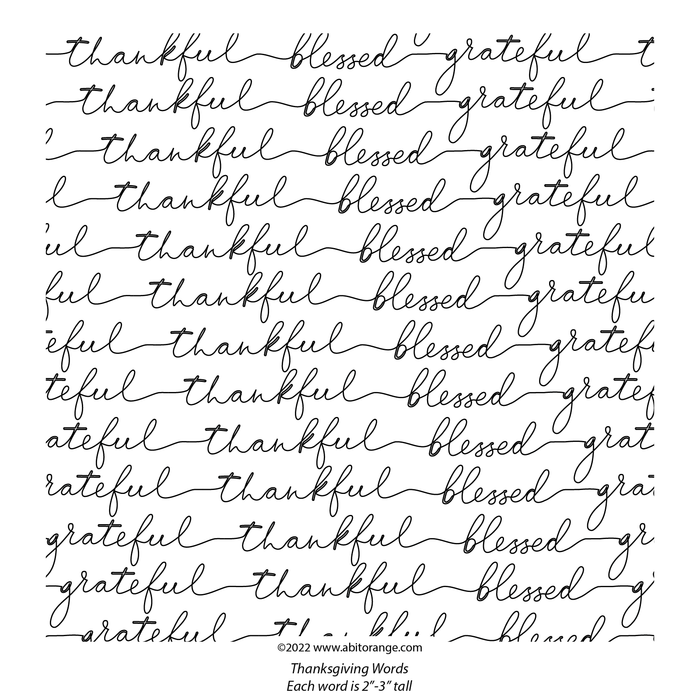 thankful blessed grateful t
thankful blessed grateful
l thankful blessed grateful
l thankful blessed grateful
ul thankful blessed grateful
ful thankful blessed gratefu
eful thankful blessed gratef
teful thankful blessed gratef
ateful thankful blessed grat
rateful thankful blessed grat
grateful thankful blessed gr
grateful thankful blessed g
grateful thankful blessed
©2022 www.abitorange.com
Thanksgiving Words
Each word is 2"-3" tall